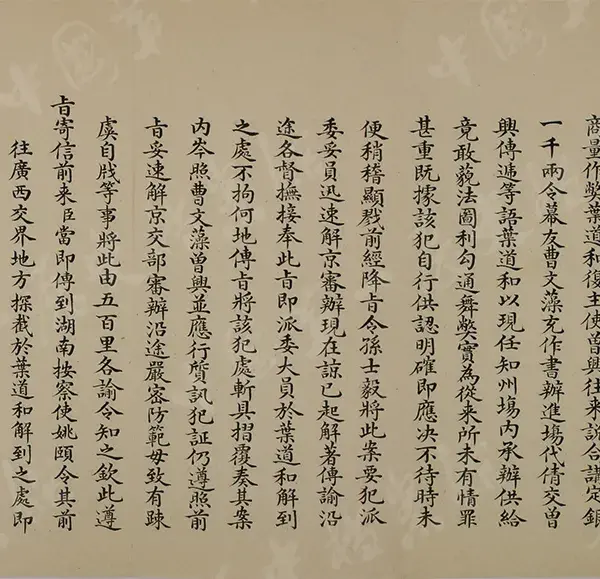 商量作弊葉道和復主使曾興往来說合講定銀
一千兩令幕友曹文藻充作書辦進塲代倩交曾
興傳遞等語葉道和以現任知州塲内承辦供給
竟敢藐法圖利勾通舞弊實為從来所未有情罪
甚重既據該犯自行供認明確即應决不待時未
便稍稽顯戮前經降旨令孫士毅將此案要犯派
委妥員迅速解京審辦現在諒已起解著傳諭沿
途各督撫接奉此旨即派委大員於葉道和解到
之處不拘何地傳旨將該犯處斬具摺覆奏其案
内岑照曹文藻曾興並應行質訊犯証仍遵照前
旨妥速解京交部審辦沿途嚴密防範毋致有疎
虞自戕等事將此由五百里各諭令知之欽此遵
旨寄信前来臣當即傳到湖南按察使姚頤令其前
往廣西交界地方探截於葉道和解到之處即